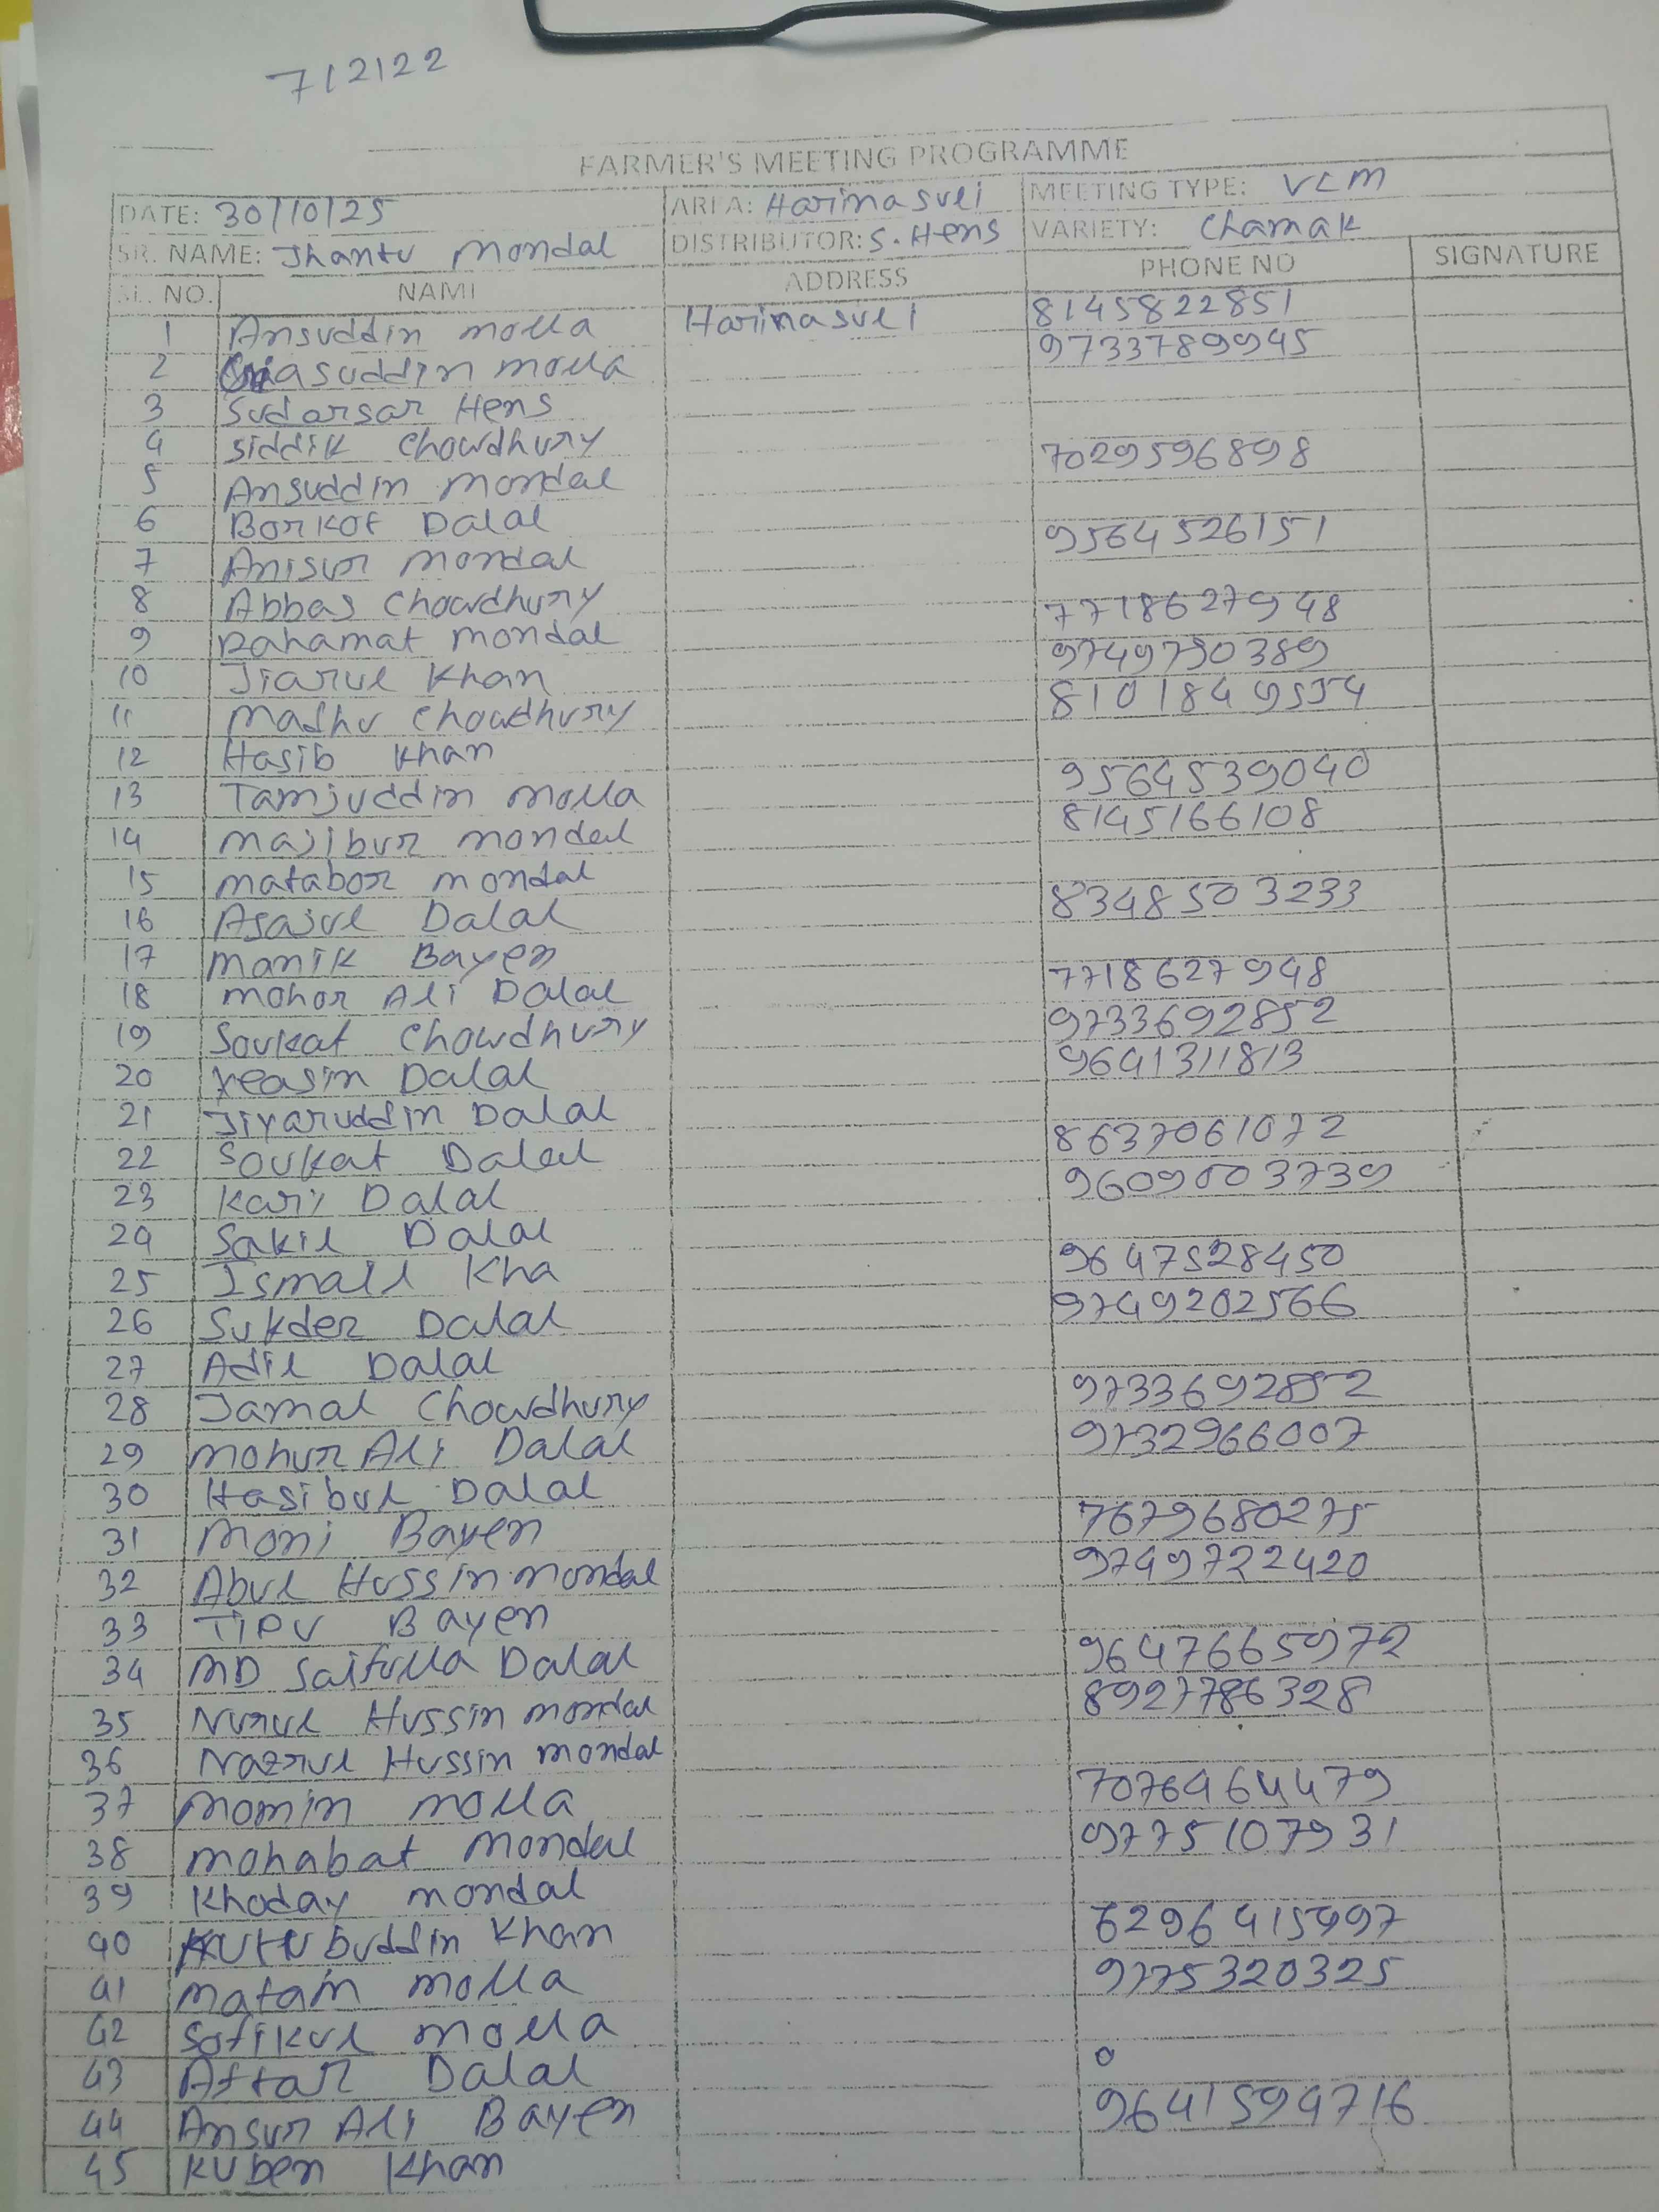 712122
FARMER'S MEETING PROGRAMME
DATE: 30/10/25 AREA: Harinasuli MEETING TYPE: VCM
SR. NAME: Jhantu Mondal DISTRIBUTOR: S. Hens VARIETY: Chamak
SL. NO. NAME ADDRESS PHONE NO SIGNATURE
1 Ansuddin Molla Harinasuli 8145822851
2 Giasuddin Molla 9733789945
3 Sudarsar Hens
4 Siddik Chowdhury 7029596898
5 Ansuddin Mondal
6 Borkot Dalal 9564526151
7 Anisur Mondal
8 Abbas Chowdhury 7718627948
9 Rahamat Mondal 9749750389
10 Jiarul Khan 8101849554
11 Madhu Chowdhury
12 Hasib Khan 9564539040
13 Tamjuddin Molla 8145166108
14 Majibur Mondal
15 Matabor Mondal 8348503233
16 Asajul Dalal
17 Manik Bayen 7718627948
18 Mohor Ali Dalal 9733692852
19 Soukat Chowdhury 9641311813
20 Yeasin Dalal
21 Jiyaruddin Dalal 8637061072
22 Soukat Dalal 9609003739
23 Kari Dalal
24 Sakil Dalal 9647528450
25 Ismail Kha 9749202566
26 Sukder Dalal
27 Adil Dalal 9733692852
28 Jamal Chowdhury 9732966007
29 Mohur Ali Dalal
30 Hasibul Dalal 7679680275
31 Moni Bayen 9749722420
32 Abul Hussin Mondal
33 TIPU Bayen 9647665972
34 MD Saifulla Dalal 8927786328
35 Nurul Hussin Mondal
36 Nazrul Hussin Mondal 7076464479
37 Momin Molla 9775107931
38 Mohabat Mondal
39 Khoday Mondal 6296415997
40 Kutubuddin Khan 9775320325
41 Matain Molla
42 Sofikul Molla
43 Aftar Dalal 9641594716
44 Ansur Ali Bayen
45 Kuben Khan